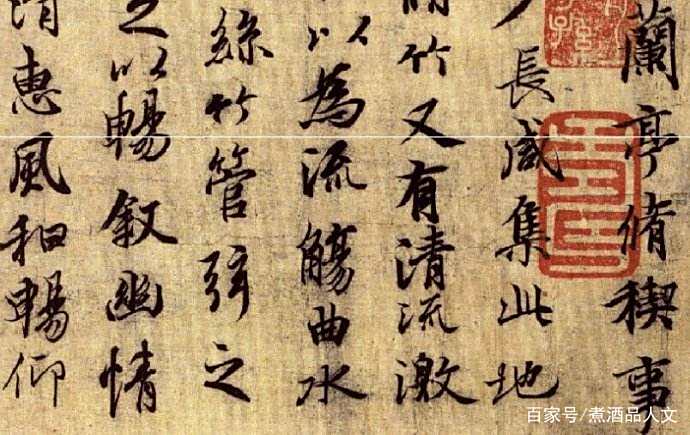 蘭亭脩稧事
長咸集此地
竹又有清流激
以為流觴曲水
絲竹管弦之
以暢叙幽情
清惠風和暢仰
百家号/煮酒品人文